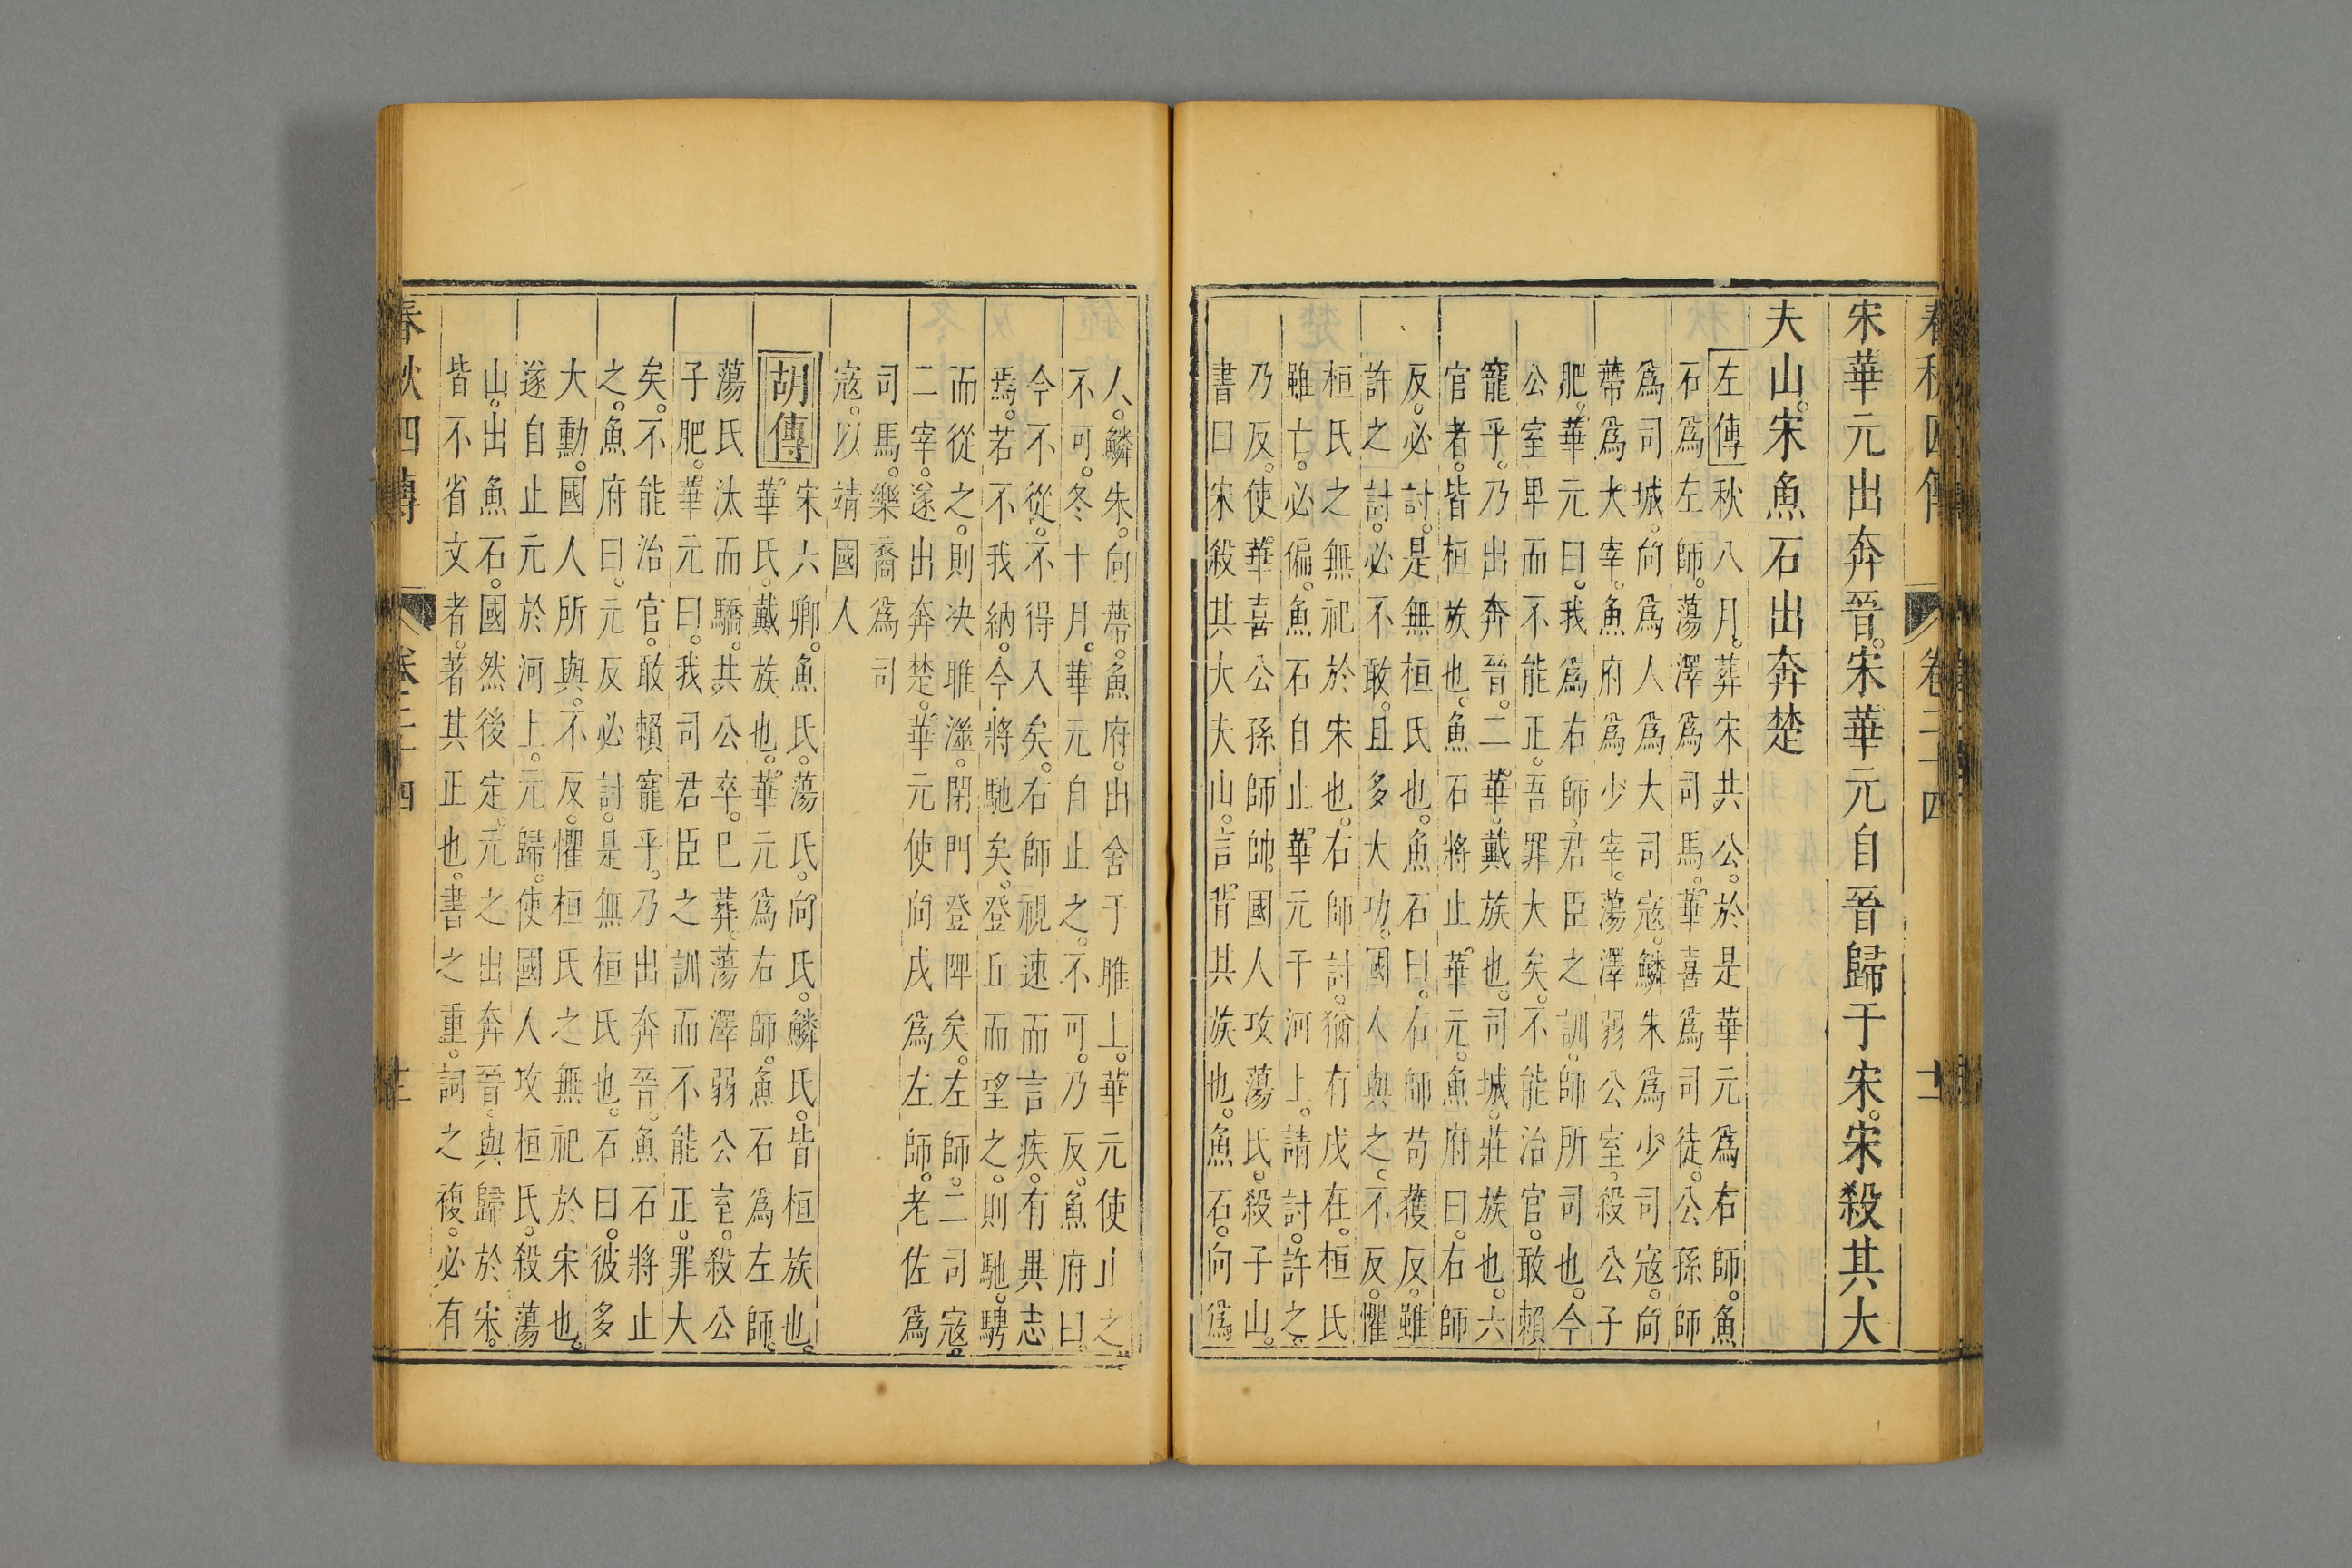 春秋四傳 卷二十四 十二
宋華元出奔晉。宋華元自晉歸于宋。宋殺其大
夫山。宋魚石出奔楚
左傳秋八月。葬宋共公。於是華元爲右師。魚
石爲左師。蕩澤爲司馬。華喜爲司徒。公孫師
爲司城。向爲人爲大司寇。鱗朱爲少司寇。向
帶爲大宰。魚府爲少宰。蕩澤弱公室。殺公子
肥。華元曰。我爲右師。君臣之訓。師所司也。今
公室卑而不能正。吾罪大矣。不能治官。敢賴
寵乎。乃出奔晉。二華。戴族也。司城。莊族也。六
官者。皆桓族也。魚石將止華元。魚府曰。右師
反。必討。是無桓氏也。魚石曰。右師苟獲反。雖
許之討。必不敢。且多大功。國人與之。不反。懼
桓氏之無祀於宋也。右師討。猶有戌在。桓氏
雖亡。必偏。魚石自止華元于河上。請討。許之。
乃反。使華喜公孫師帥國人攻蕩氏。殺子山。
書曰宋殺其大夫山。言背其族也。魚石。向爲
人。鱗朱。向帶。魚府。出舍于睢上。華元使止之
不可。冬十月。華元自止之。不可。乃反。魚府曰。
今不從。不得入矣。右師視速而言疾。有異志
焉。若不我納。今將馳矣。登丘而望之。則馳。騁
而從之。則決睢澨。閉門登陴矣。左師。二司寇。
二宰。遂出奔楚。華元使向戌爲左師。老佐爲
司馬。樂裔爲司
寇。以靖國人
胡傳宋六卿。魚氏。蕩氏。向氏。鱗氏。皆桓族也。
華氏。戴族也。華元爲右師。魚石爲左師。
蕩氏汰而驕。共公卒。巳葬。蕩澤弱公室。殺公
子肥。華元曰。我司君臣之訓而不能正。罪大
矣。不能治官。敢賴寵乎。乃出奔晉。魚石將止
之。魚府曰。元反必討。是無桓氏也。石曰。彼多
大勳。國人所與。不反。懼桓氏之無祀於宋也。
遂自止元於河上。元歸。使國人攻桓氏。殺蕩
山。出魚石。國然後定。元之出奔晉。與歸於宋。
皆不省文者。著其正也。書之重。詞之複。必有
春秋四傳 卷二十四